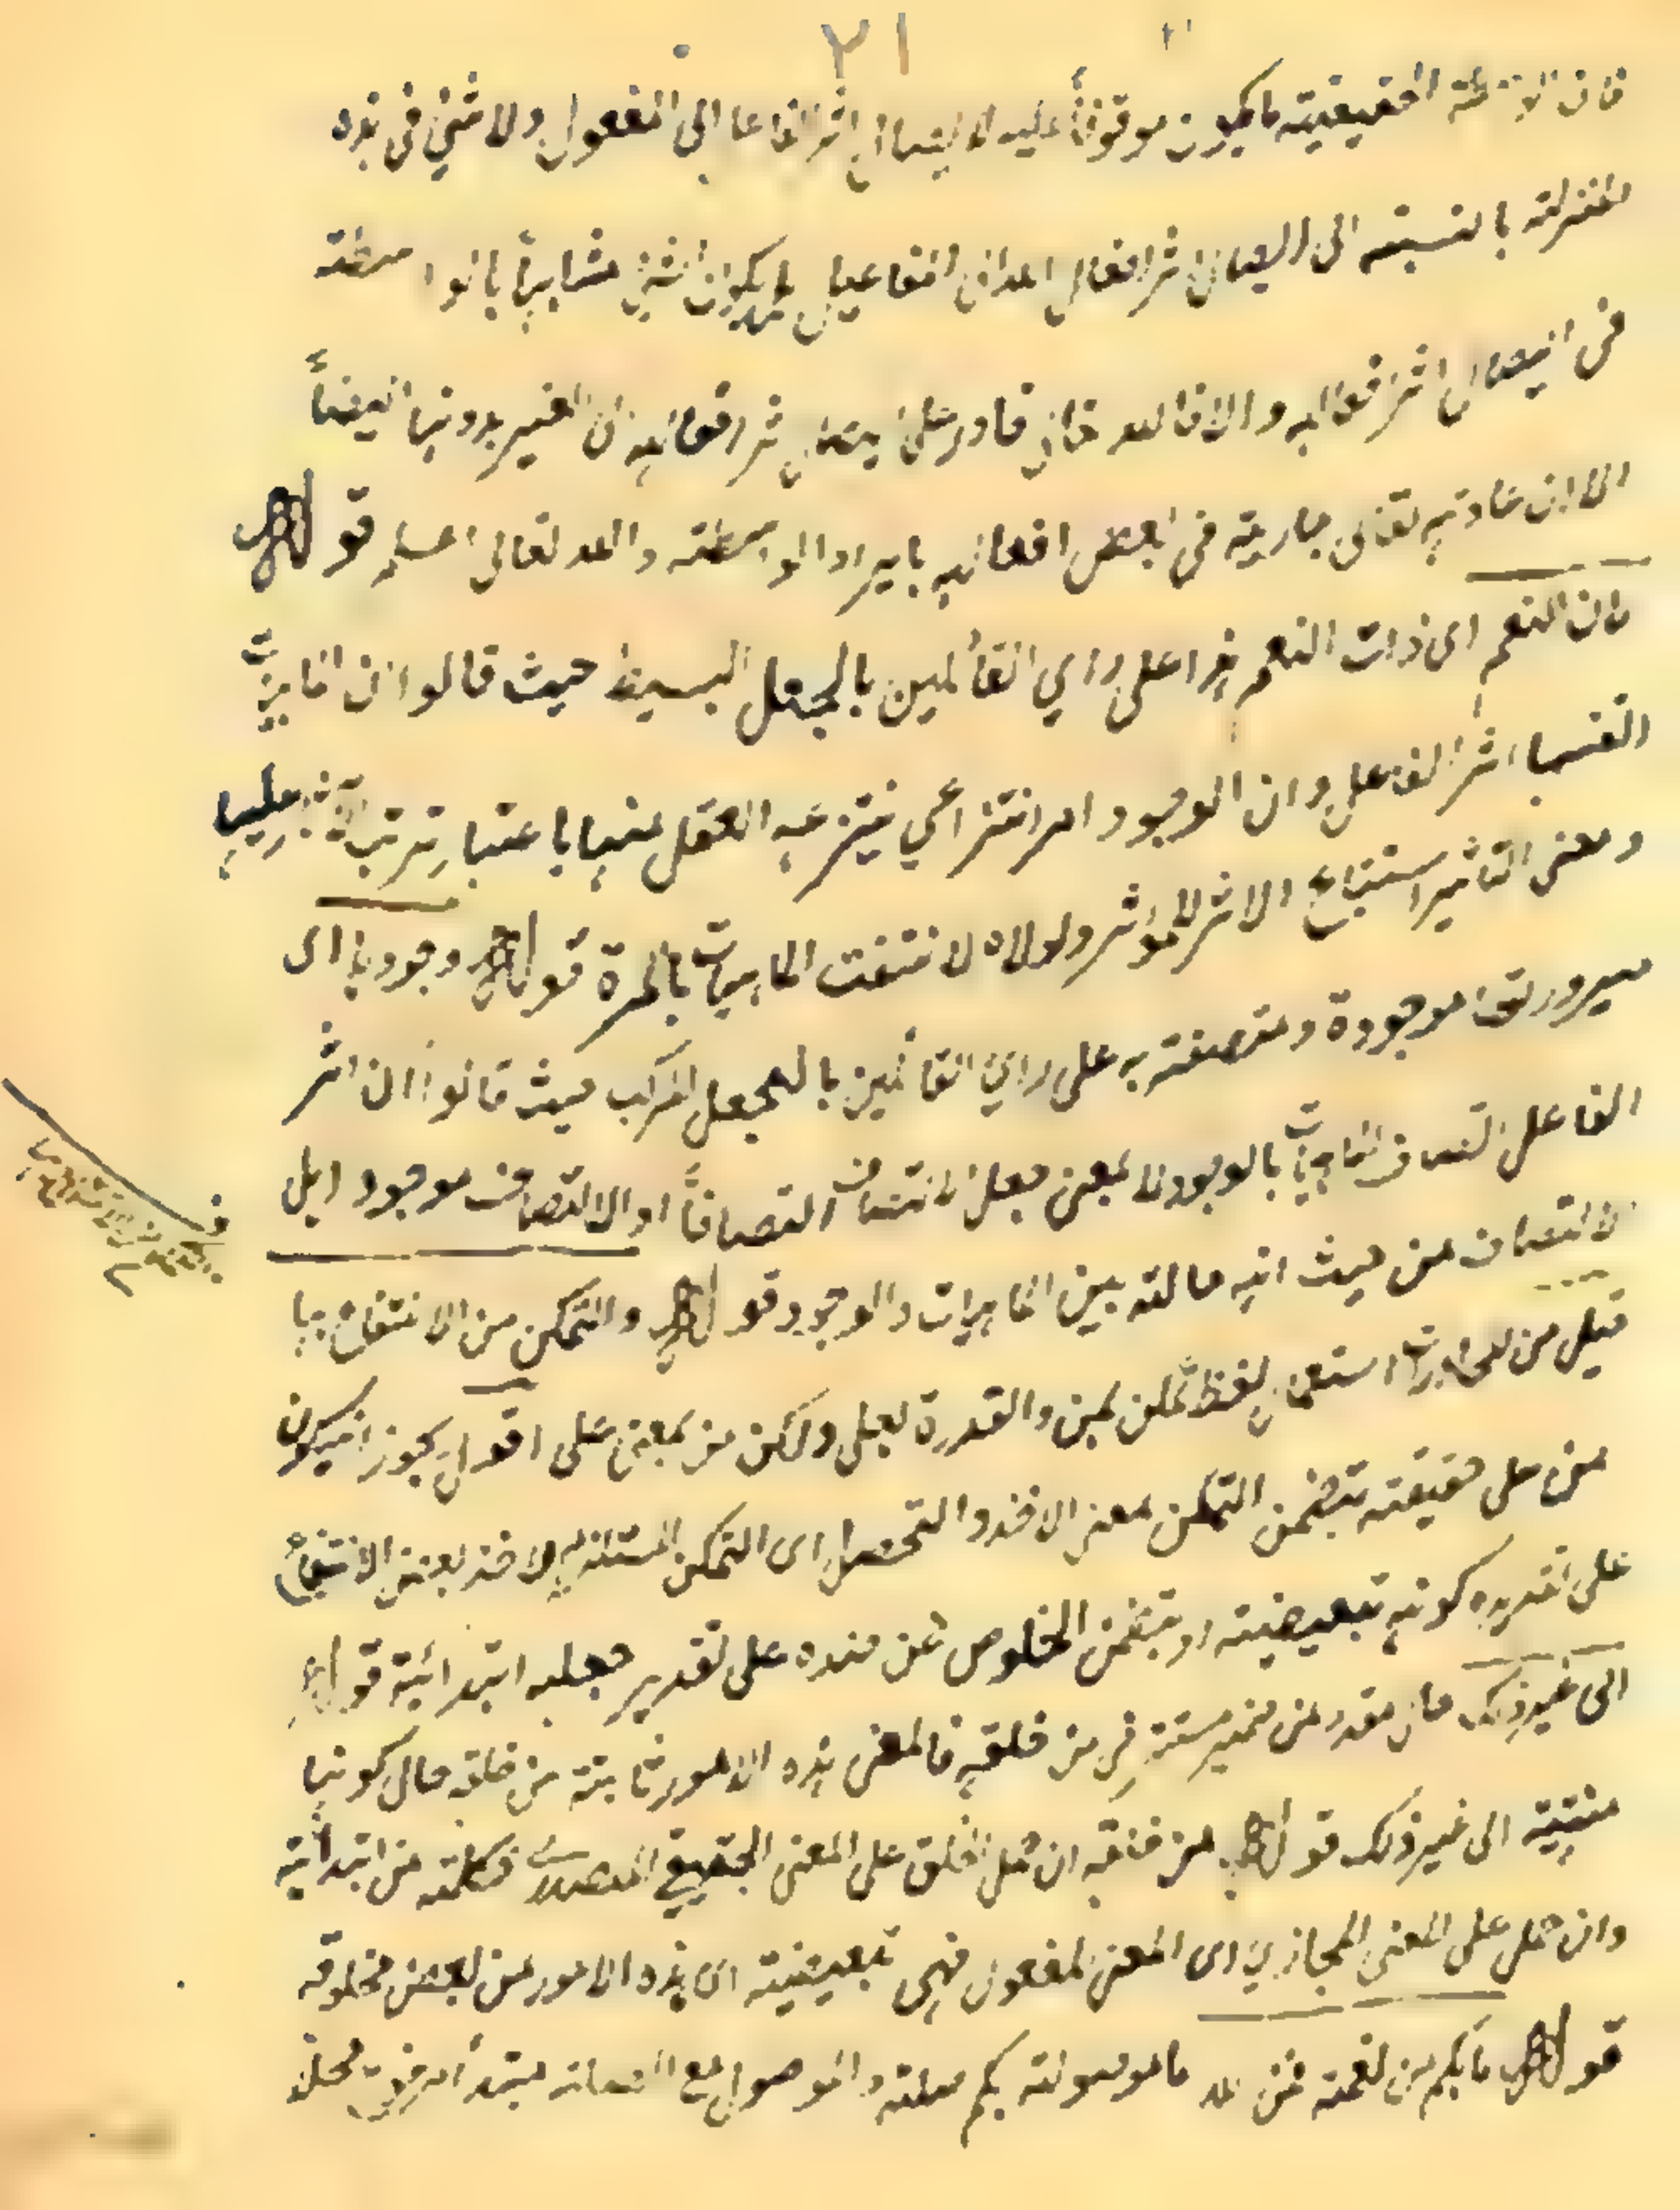 ٢١
فان الآلة الحقيقية ما يكون موقوفاً عليه لايصال اثر الفاعل الى المفعول ولا شئ في هذه
المنزلة بالنسبة الى ايصال اثر افعال الله تعالى يكون شئ مشابهاً بالواسطة
في ايصال اثر افعاله والا فالله تعالى قادر على ايصال اثر افعاله الى الغير بدونها ايضاً
الا ان عادته تعالى جارية في بعض افعاله بايراد الواسطة والله تعالى اعلم قوله
فان النعم اى ذوات النعم هذا على راي القائلين بالجعل البسيط حيث قالوا ان الماهيات
انفسها اثر الفاعل وان الوجود امر انتزاعي ينتزعه العقل عنها باعتبار ترتب الآثار عليها
ومعنى التاثير استتباع الاثر للمؤثر ولولاه لانتفت الماهيات بالمرة قوله وجودها اى
صيرورتها موجودة ومتصفة به على راي القائلين بالجعل المركب حيث قالوا ان اثر
الفاعل اتصاف الماهيات بالوجود لا بمعنى جعل الاتصاف اتصافاً او الاتصاف موجود ابل
الاتصاف من حيث انه حالة بين الماهيات والوجود قوله والتمكن من الانتفاع بها
قيل من المحاورات استعمال لفظ تمكن بمن والقدرة بعلى ولكن من بمعنى على اقول يجوز ان يكون
من على حقيقته بتضمن التمكن معنى الاخذ والتحصيل اى التمكن المستلزم لاخذ بعض الانتفاع
على تقدير كونه تبعيضية او بتضمن الخلوص عن ضده على تقدير جعله ابتدائية قوله
الى غير ذلك حال مقدر من ضمير مستتر في من خلقه فالمعنى هذه الامور ثابتة من خلقه حال كونها
منتهية الى غير ذلك قوله من خلقه ان حمل الخلق على المعنى الحقيقي المصدري فكلمة من ابتدائية
وان حمل على المعنى المجازي اى المعنى المفعول فهى تبعيضية اى هذه الامور من بعض مخلوقه
قوله ما بكم من نعمة فمن الله ما موصولة بكم صلته والموصول مع الصلة مبتدأ مرفوع محلاً